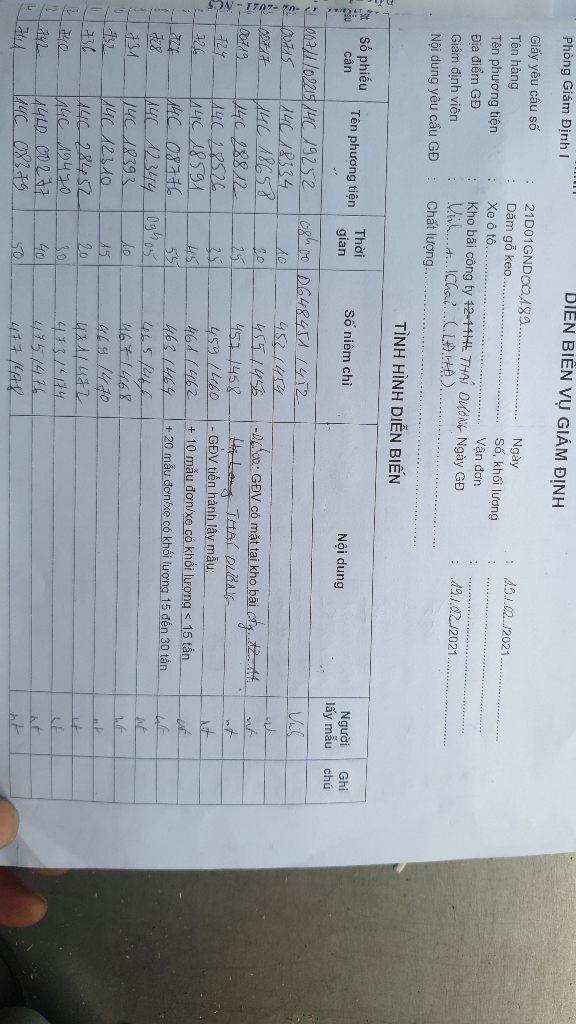 Phòng Giám Định I
DIỄN BIẾN VỤ GIÁM ĐỊNH
Giấy yêu cầu số : 21D01GND00189 Ngày : 19/.02../2021
Tên hàng : Dăm gỗ keo Số, khối lượng :
Tên phương tiện : Xe ô tô Vận đơn :
Địa điểm GĐ : Kho bãi công ty THÁI DƯƠNG Ngày GĐ : 19/.02../2021
Giám định viên :
Nội dung yêu cầu GĐ : Chất lượng
TÌNH HÌNH DIỄN BIẾN
Số phiếu cân Tên phương tiện Thời gian Số niêm chì Nội dung Người lấy mẫu Ghi chú
14C 19252 08h00 DG48451/452
00715 14C 18334 10 nt
00717 14C 18658 20 455/456 - 06h00: GĐV có mặt tại kho bãi nt
00719 14C 28812 25 457/458 THÁI DƯƠNG nt
724 14C 28526 35 459/460 - GĐV tiến hành lấy mẫu: nt
726 14C 18591 45 461/462 + 10 mẫu đơn/xe có khối lượng < 15 tấn nt
727 14C 08776 55 463/464 + 20 mẫu đơn/xe có khối lượng 15 đến 30 tấn nt
728 14C 12344 09h05 465/466 nt
731 14C 18393 10 467/468 nt
732 14C 12310 15 469/470 nt
736 14C 28452 20 471/472 nt
740 14C 19470 30 473/474 nt
742 40 475/476 nt
14C 08379 50 477/478 nt